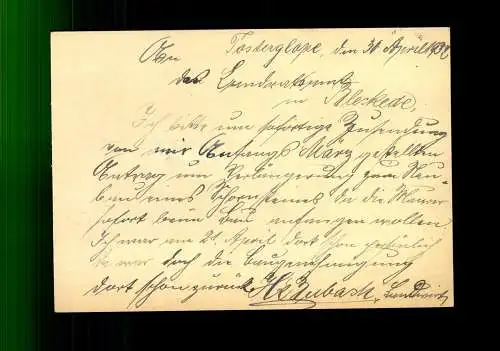 An Tosterglope, den 30 April 1932
das Landratsamt
in Bleckede.
Ich bitte um sofortige Zusendung
von mir Anfangs März gestellten
Antrag um Verlängerung zum Neu-
bau eines Schornsteines da die Maurer
sofort beim Bau anfangen wollen.
Ich war am 21. April dort schon persönlich
war doch die Baugenehmigung
dort schon zurück. Landwirt